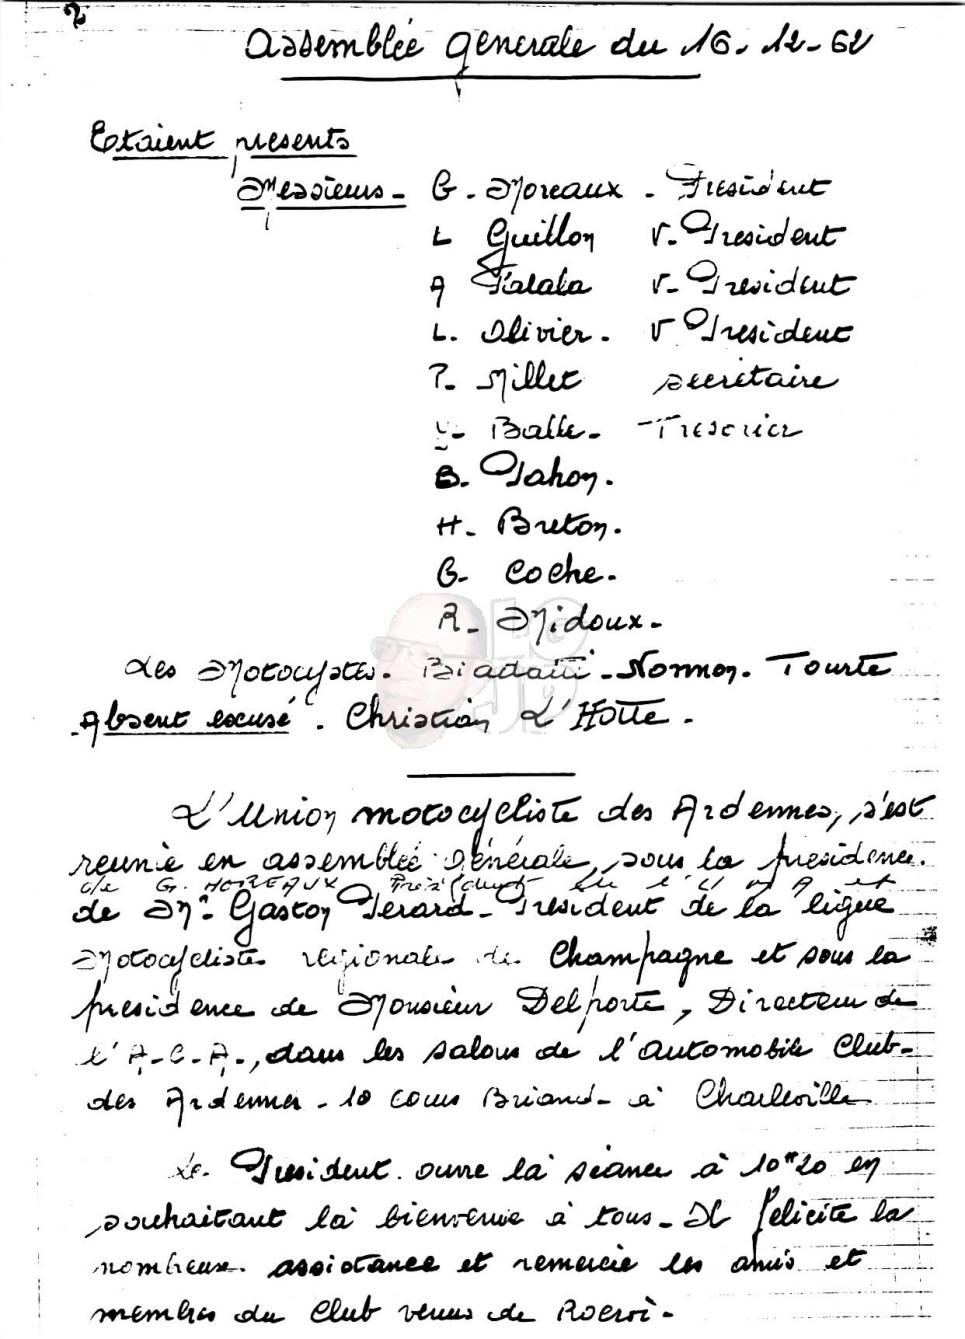 2
Assemblée générale du 16-12-62
Etaient présents
Messieurs - G. Moreaux - Président
L Guillon V. Président
A Falala V. Président
L. Olivier. V Président
P. Millet secrétaire
Y. Balle - Trésorier
B. Pahon.
H. Breton.
G. Coche.
R. Midoux.
Les Motocystes. Biadatti - Nonnon. Tourte
Absent excusé. Christian L'Hotte.
L'Union motocycliste des Ardennes, s'est
reunie en assemblée générale, sous la présidence.
de G. MOREAUX Président de l'U M A et
de Mr. Gaston Perard - President de la ligue
Motocycliste régionale de Champagne et sous la
présidence de Monsieur Delporte, Directeur de
l'A.C.A., dans les salons de l'automobile Club-
des Ardennes - 10 cours Briand - à Charleville
Le President ouvre la séance à 10H20 en
souhaitant la bienvenue à tous - Il félicite la
nombreuse assistance et remercie les amis et
membres du Club venus de Rocroi-